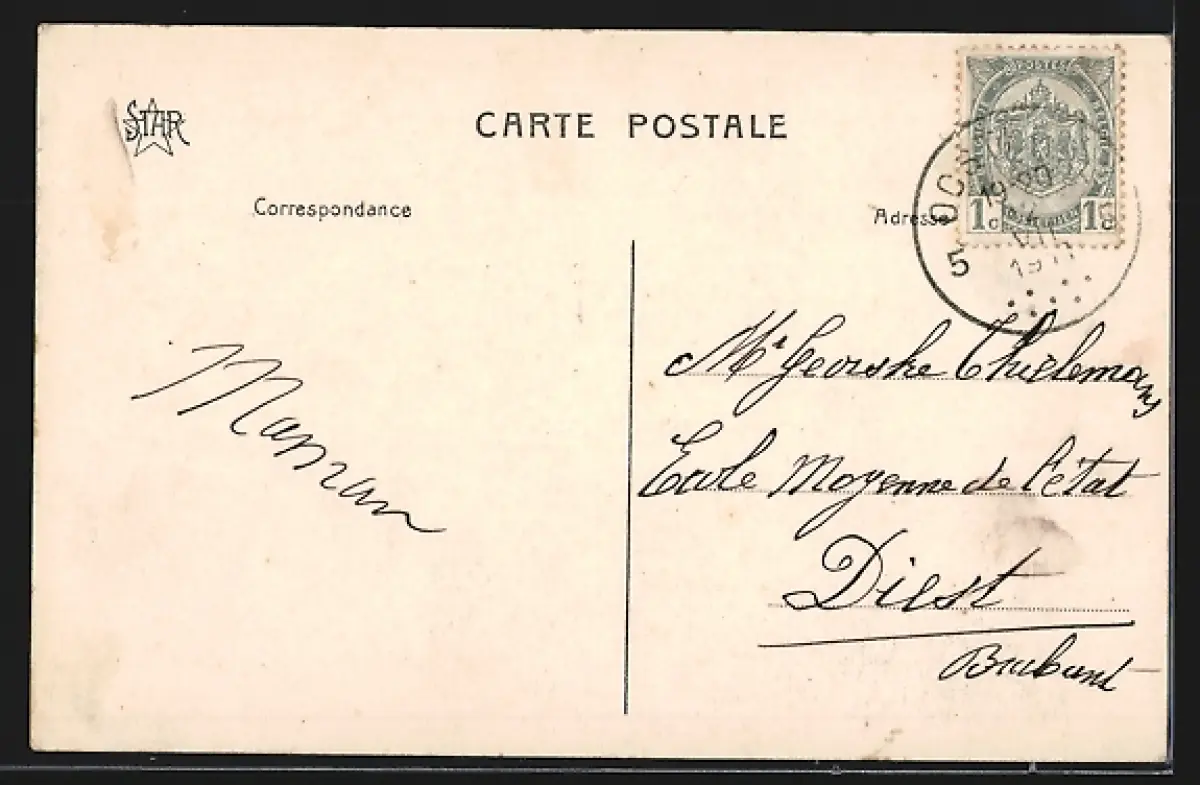 STAR
CARTE POSTALE
Correspondance
Adresse
POSTES
1c 1c
5
1911
Maman
Mr Georske Thielemans
Ecole Moyenne de l'état
Diest
Brabant